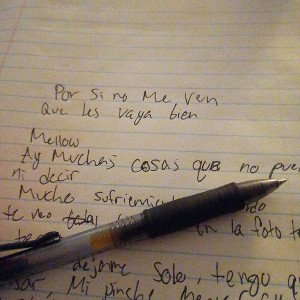 Por si no Me ven
Que les vaya bien
Mellow
Ay Muchas cosas que no pue
ni decir
Mucho sufrimie
te veo en la foto
dejarme solo, tengo q
sar, Mi pinche